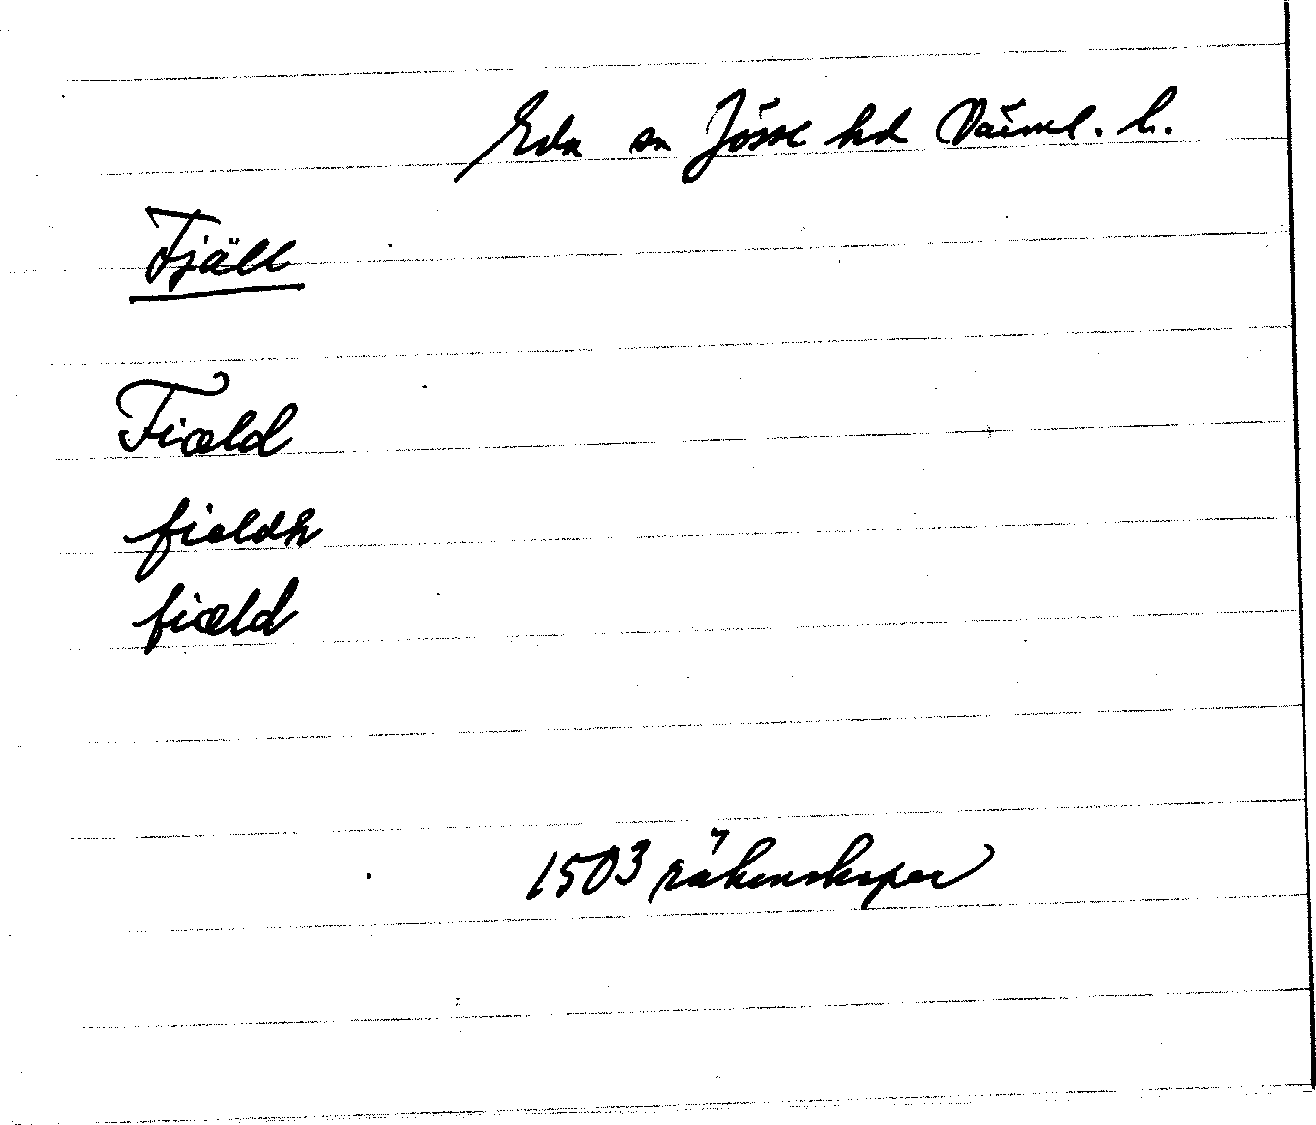 Eda sn Jösse hd Värml. l.
Fjäll
Fiæld
fieldh
fiæld
1503 räkenskaper